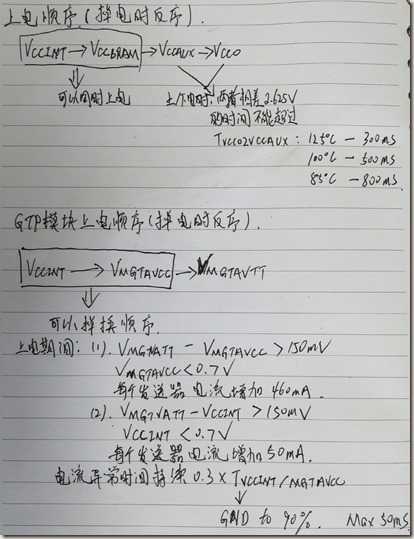 上电顺序(掉电时反序).
VCCINT → VCCBRAM → VCCAUX → VCCO
可以同时上电
上/下电时,两者相差2.625V
的时间不能超过
TVCCO2VCCAUX: 125°C — 300ms
100°C — 500ms
85°C — 800ms
GTP模块上电顺序(掉电时反序).
VCCINT → VMGTAVCC → VMGTAVTT
可以择换顺序.
上电期间: (1). VMGTVATT - VMGTAVCC > 150mV
VMGTAVCC < 0.7V
每个发送器电流增加460mA.
(2). VMGTVATT - VCCINT > 150mV
VCCINT < 0.7V
每个发送器电流增加50mA.
电流异常时间持续0.3×TVCCINT/MGTAVCC
GND to 90%. Max 50ms